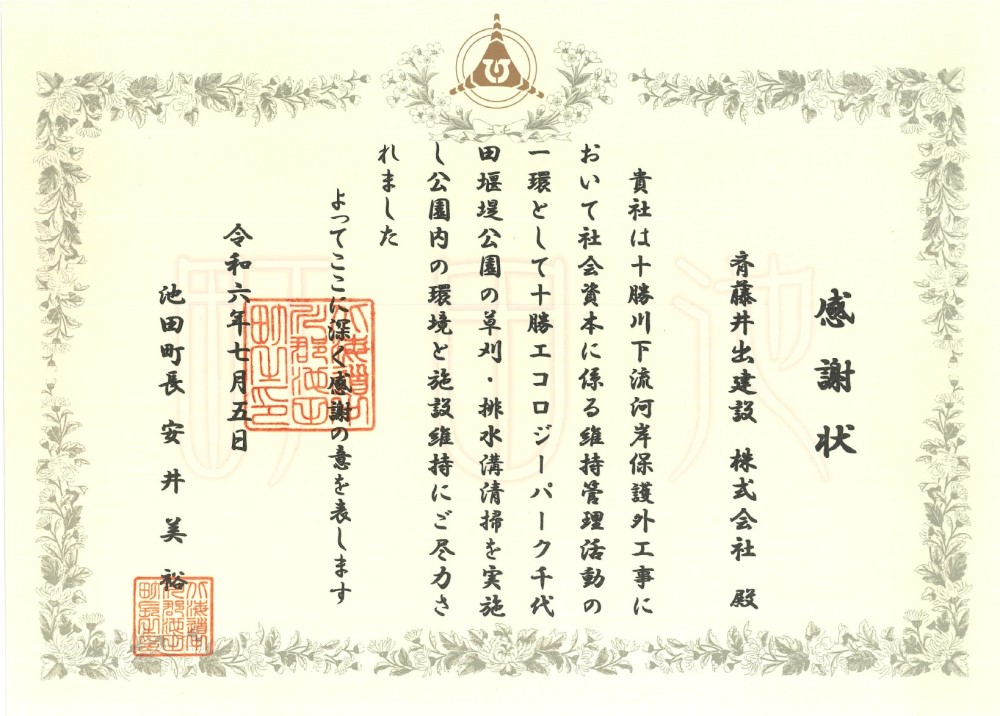 感謝状
斉藤井出建設 株式会社 殿
貴社は十勝川下流河岸保護外工事に
おいて社会資本に係る維持管理活動の
一環として十勝エコロジーパーク千代
田堰堤公園の草刈・排水溝清掃を実施
し公園内の環境と施設維持にご尽力さ
れました
よってここに深く感謝の意を表します
令和六年七月五日
池田町長 安井美裕
池田町